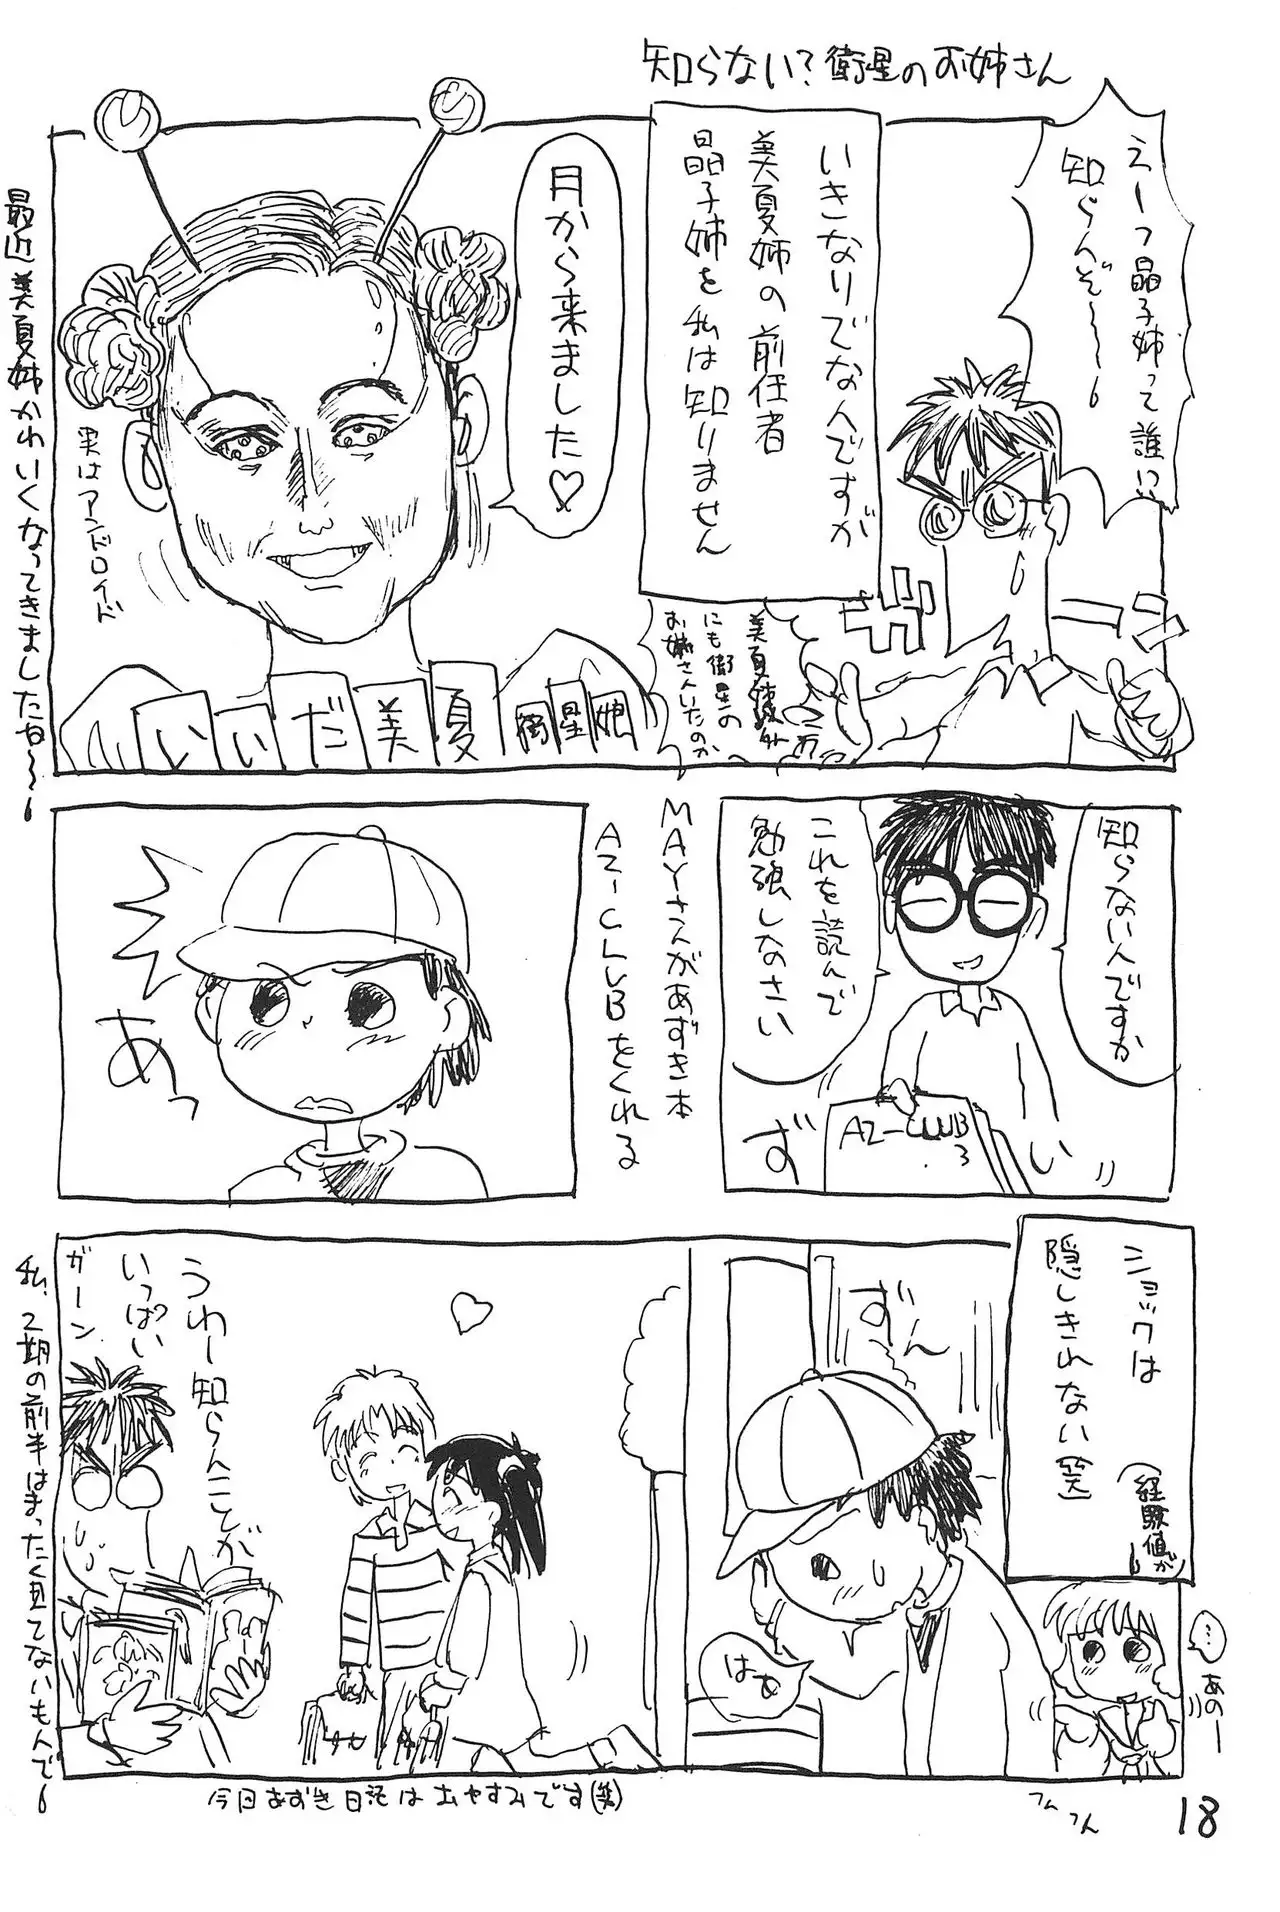 知らない?衛星のお姉さん
えーっ晶子姉って誰ぃっ
知らんぞ〜〜〜
いきなりでなんですが
美夏姉の前任者
晶子姉を私は知りません
ガーン
美夏姉以外
にも衛星の
お姉さんいたのか
月から来ました♡
実はアンドロイド
いいだ美夏
衛星娘
最近美夏姉かわいくなってきましたね〜〜
知らないんですか
これを読んで
勉強しなさい
AZ-CLUB
3
ずい
MAYさんがあずき本
AZ-CLUBをくれる
あっ
ショックは
隠しきれない(笑)
(経験値が)
ずん
はぁ
…
あのー
うわー知らんことが
いっぱいっ
ガーン
私、2期の前半はまったく見てないもんで〜
今日あずき日記はおやすみです(笑)
ふん
ふん
18